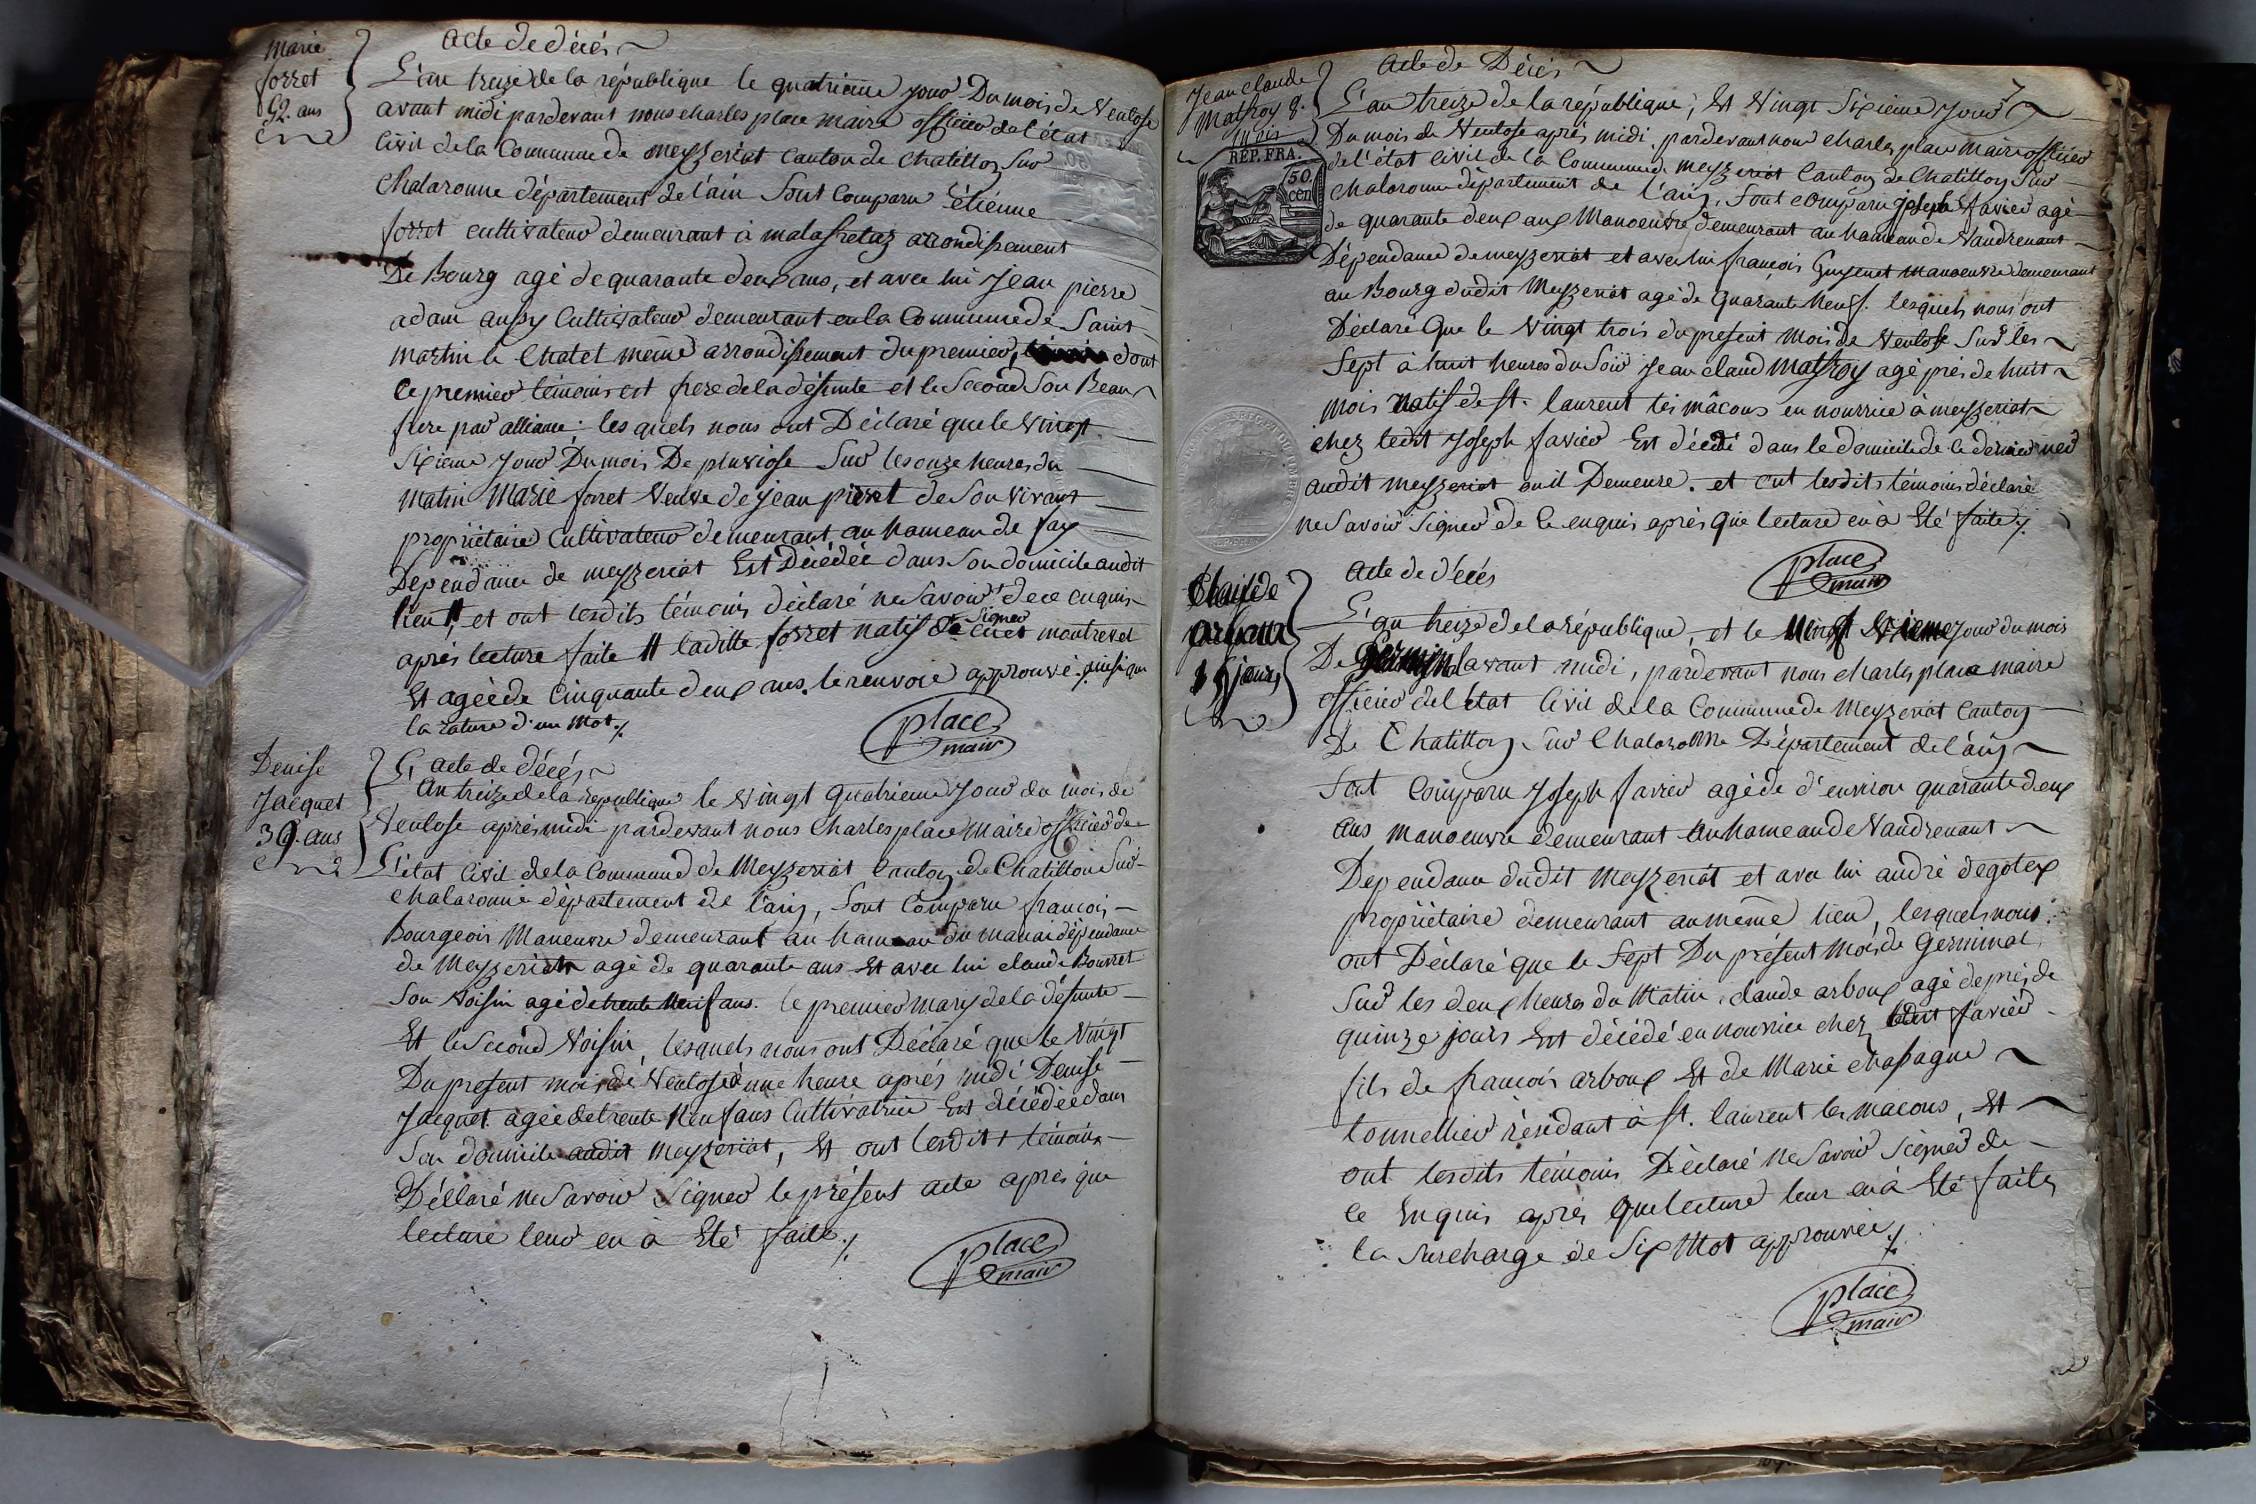 Marie
forret
52. ans
acte de décés
L'an treize de la république le quatrieme jour Du mois de Ventose
avant midi pardevant nous charles place maire officier de l'état
Civil de la Commune de meyzeriat Canton de chatillon Sur
Chalaronne département de l'ain Sont Comparu Etienne
forret cultivateur demeurant à malafretaz arondissement
De Bourg agé de quarante deux ans, et avec lui Jean pierre
adam aussy Cultivateur demeurant en la Commune de Saint
martin le Chatel même arrondissement du premier, dont
le premier témoins est frere de la défunte et le Second Son Beau
frere par alliance; lesquels nous ont Déclaré que le Vingt
Sixieme jour Du mois De pluviose Sur les onze heures du
matin Marie forret Veuve de jean pirret de Son Vivant
propriétaire Cultivateur demeurant au hameau de fay
Dependance de meyzeriat Est Décédée dans Son domicile audit
lieu #, et ont lesdits témoins déclaré ne Savoir de ce enquis
Signer
après lecture faite # laditte forret natif de Cuet montrevel
Et agée de Cinquante deux ans. le renvoie approuvé ainsi que
la rature d'un mot ./.
place
maire
Denise
Jacquet
39. ans
acte de décés
L'An treize de la republique le Vingt quatrieme Jour du mois de
Ventose après midi pardevant nous Charles place maire officier de
L'état Civil de la Commune de Meyzeriat Canton de Chatillon Sur
chalaronne département de l'ain, Sont Comparu françois
Bourgeois Maneuvre demeurant au hameau du manai dépendance
de Meyzeriat agé de quarante ans Et avec lui claude Bouvret
Son Voisin agé de trente Neuf ans. le premier mary de la défunte
Et le Second Voisin, lesquels nous ont Déclaré que le Vingt
Du present mois de Ventose à une heure après midi Denise
Jacquet agée de trente Neuf ans Cultivatrice Est décédée dans
Son domicile audit Meyzeriat, Et ont lesdits témoins
Déclaré ne Savoir Signer le présent acte après que
lecture leur en à Eté faite ./.
place
maire
7
Jean claude
Matfroy 8.
mois
RÉP. FRA.
50
cen
acte de Décés
L'an treize de la république, Et Vingt Sixieme Jour
Du mois de Ventose après midi, pardevant nous charles place maire officier
de l'état Civil de la Commune de meyzeriat Canton de Chatillon Sur
chalaronne département de l'ain, Sont comparu joseph favier agé
de quarante deux ans Manoeuvre demeurant au hameau de Vandrenant
Dépendance de meyzeriat et avec lui françois Guyenet manoeuvre demeurant
au Bourg dudit Meyzeriat agé de Quarante Neuf. lesquels nous ont
Déclaré Que le Vingt trois du present mois de Ventose Sur les
Sept à huit heures du Soir Jean claud Matfroy agé près de huit
mois natif de St. laurent les mâcons en nourrice à meyzeriat
chez ledit Joseph favier Est décédé dans le domicile de le dernier
audit meyzeriat ou il Demeure. et ont lesdits témoins déclaré
ne Savoir Signer de Ce enquis après Que lecture en à Eté faite ./.
place
maire
Claude
arboux
15 jours
acte de décés
L'an treize de la république, et le Jour du mois
De Germinal avant midi, pardevant nous charles place maire
officier de l'état Civil de la Commune de Meyzeriat Canton
De Chatillon Sur Chalaronne Département de l'ain
Sont Comparu Joseph favier agé de d'environ quarante deux
ans manoeuvre demeurant au hameau de Vandrenant
Dependance dudit Meyzeriat et avec lui andré degotex
propriétaire demeurant au même lieu, lesquels nous
ont Déclaré que le Sept Du présent mois de Germinal
Sur les deux heures du Matin, claude arboux agé de près de
quinze jours Est décédé en nourrice chez ledit favier
fils de françois arboux Et de Marie chassagne
tonnellier résidant à St. laurent les macons, Et
ont lesdits témoins Déclaré Ne Savoir Signer de
ce Enquis après Que lecture leur en à Eté faite
la Surcharge de Six Mot approuvée ./.
place
maire